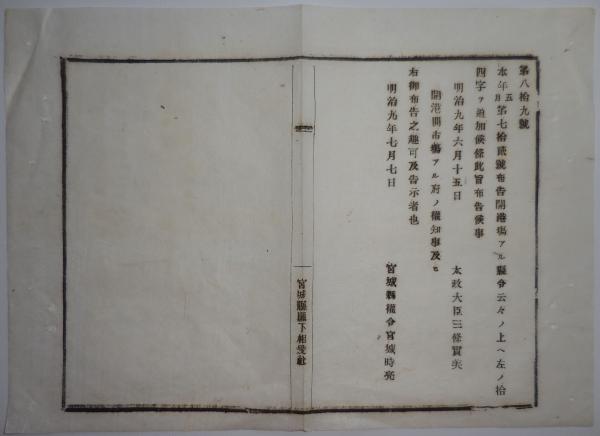 第八拾九號
本年五月第七拾貳號布告開港塲アル縣令云々ノ上ヘ左ノ拾
四字ヲ追加候條此旨布告候事
明治九年六月十五日
太政大臣三條實美
開港開市塲アル府ノ權知事及ヒ
右御布告之趣可及告示者也
明治九年七月七日
宮城縣權令宮城時亮
宮城縣縣下相愛社